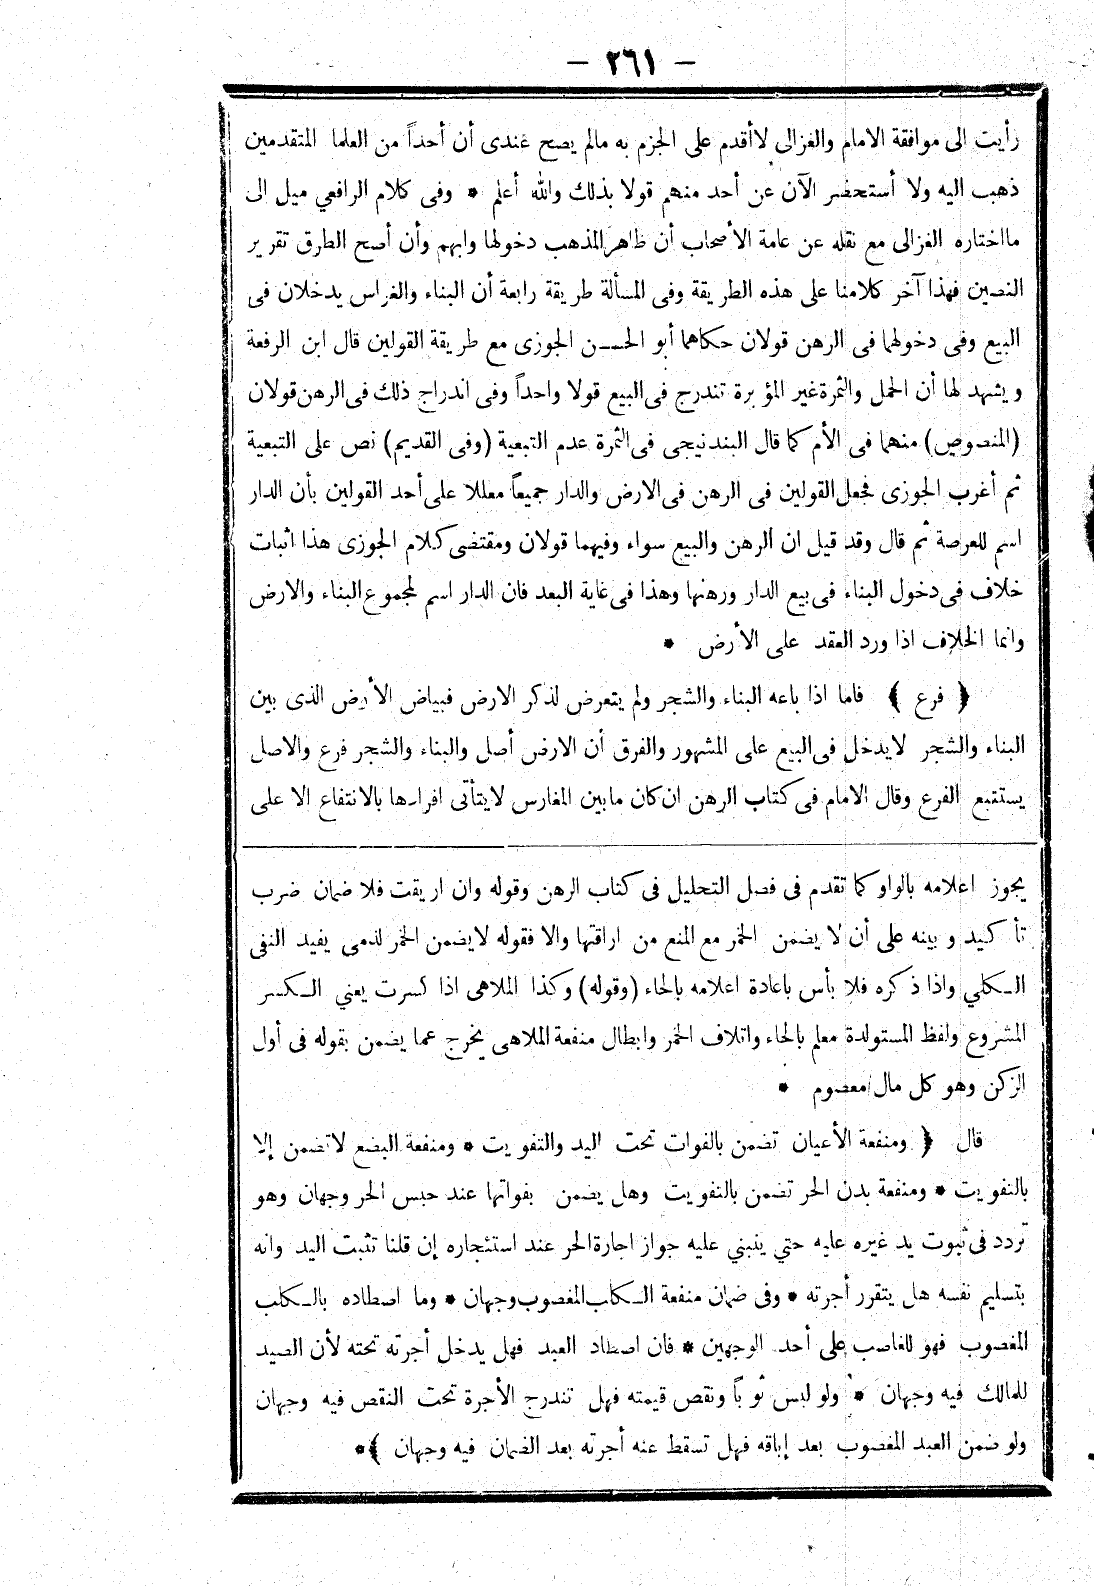 - ٢٦١ -
رأيت الى موافقة الامام والغزالى لاأقدم على الجزم به مالم يصح عندى أن أحداً من العلما المتقدمين
ذهب اليه ولا أستحضر الآن عن أحد منهم قولا بذلك والله أعلم * وفى كلام الرافعي ميل الى
مااختاره الغزالى مع نقله عن عامة الأصحاب أن ظاهر المذهب دخولها وابهم وأن أصح الطرق تقرير
النصين فهذا آخر كلامنا على هذه الطريقة وفى المسألة طريقة رابعة أن البناء والغراس يدخلان فى
البيع وفى دخولهما فى الرهن قولان حكاهما أبو الحسن الجوزى مع طريقة القولين قال ابن الرفعة
ويشهد لها أن الحمل والثمرة غير المؤبرة تندرج فى البيع قولا واحداً وفى اندراج ذلك فى الرهن قولان
(المنصوص) منهما فى الأم كما قال البندنيجى فى الثمرة عدم التبعية (وفى القديم) نص على التبعية
ثم أغرب الجوزى فجعل القولين فى الرهن فى الارض والدار جميعاً معللا على أحد القولين بأن الدار
اسم للعرصة ثم قال وقد قيل ان الرهن والبيع سواء وفيهما قولان ومقتضى كلام الجوزى هذا اثبات
خلاف فى دخول البناء فى بيع الدار ورهنها وهذا فى غاية البعد فان الدار اسم لمجموع البناء والارض
وانما الخلاف اذا ورد العقد على الأرض *
﴿ فرع ﴾ فاما اذا باعه البناء والشجر ولم يتعرض لذكر الارض فبياض الأرض الذى بين
البناء والشجر لايدخل فى البيع على المشهور والفرق أن الارض أصل والبناء والشجر فرع والاصل
يستتبع الفرع وقال الامام فى كتاب الرهن ان كان مابين المغارس لايتأتى افرادها بالانتفاع الا على
يجوز اعلامه بالواو كما تقدم فى فصل التحليل فى كتاب الرهن وقوله وان اريقت فلا ضمان ضرب
تأكيد وبينه على أن لا يضمن الخمر مع المنع من اراقتها والا فقوله لايضمن الخمر لذمى يفيد النفى
الكلي واذا ذكره فلا بأس باعادة اعلامه بالحاء (وقوله) وكذا الملاهى اذا كسرت يعني الكسر
المشروع ولفظ المستولدة معلم بالحاء واتلاف الخمر وابطال منفعة الملاهى يخرج عما يضمن بقوله فى أول
الركن وهو كل مال معصوم *
قال ﴿ ومنفعة الأعيان تضمن بالفوات تحت اليد والتفويت * ومنفعة البضع لاتضمن إلا
بالتفويت * ومنفعة بدن الحر تضمن بالتفويت وهل يضمن بفواتها عند حبس الحر وجهان وهو
تردد فى ثبوت يد غيره عليه حتي ينبني عليه جواز اجارة الحر عند استئجاره إن قلنا تثبت اليد وانه
بتسليم نفسه هل يتقرر أجرته * وفى ضمان منفعة الكلب المغصوب وجهان * وما اصطاده بالكلب
المغصوب فهو للغاصب على أحد الوجهين * فان اصطاد العبد فهل يدخل أجرته تحته لأن الصيد
للمالك فيه وجهان * ولو لبس ثوباً ونقص قيمته فهل تندرج الأجرة تحت النقص فيه وجهان
ولو ضمن العبد المغصوب بعد إباقه فهل تسقط عنه أجرته بعد الضمان فيه وجهان ﴾ *